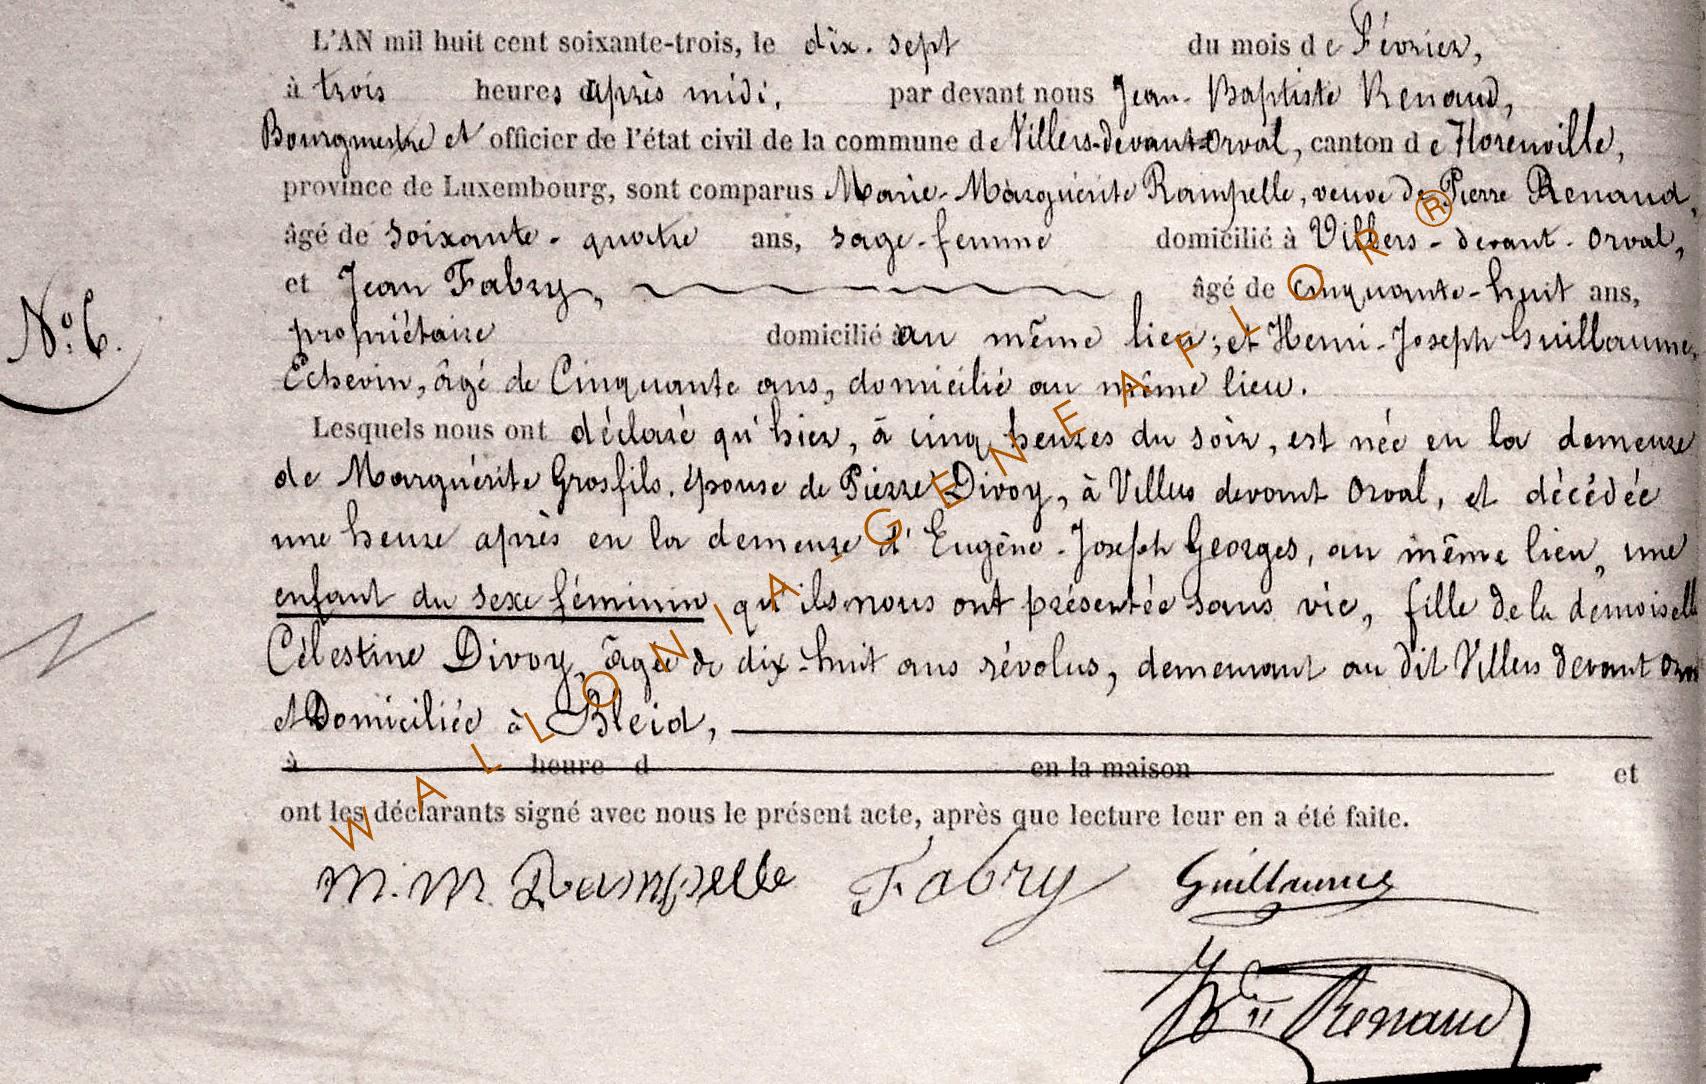 L'AN mil huit cent soixante-trois, le dix-sept du mois de Février,
à trois heures après midi, par devant nous Jean-Baptiste Renaud,
Bourgmestre et officier de l'état civil de la commune de Villers-devant-Orval, canton de Florenville,
province de Luxembourg, sont comparus Marie-Marguérite Rampelle, veuve de Pierre Renaud,
âgé de soixante-quatre ans, sage-femme domicilié à Villers-devant-Orval,
et Jean Fabry, âgé de cinquante-huit ans,
N° 6.
propriétaire domicilié au même lieu; et Henri-Joseph Guillaume,
Echevin, âgé de Cinquante ans, domicilié au même lieu.
Lesquels nous ont déclaré qu'hier, à cinq heures du soir, est née en la demeure
de Marguérite Grosfils, épouse de Pierre Divoy, à Villers devant Orval, et décédée
une heure après en la demeure d'Eugène-Joseph Georges, au même lieu, une
enfant du sexe féminin, qu'ils nous ont présentée sans vie, fille de la demoiselle
Célestine Divoy, âgée de dix-huit ans révolus, demeurant au dit Villers devant Orval
et Domiciliée à Bleid,
à heure d en la maison et
ont les déclarants signé avec nous le présent acte, après que lecture leur en a été faite.
M. M. Rampelle Fabry Guillaume
JBte Renaud
WALLONIA-GENEAFLOR®